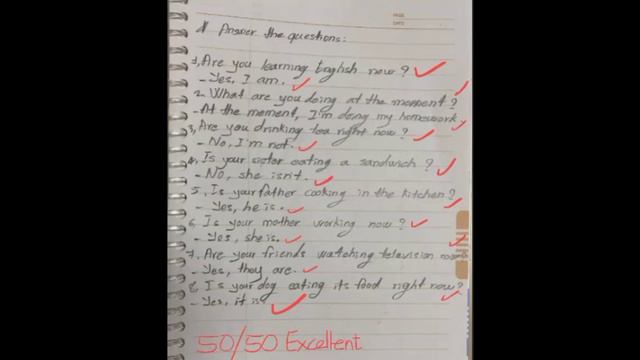 PAGE
DATE
Answer the questions:
1, Are you learning English now?
- Yes, I am.
2. What are you doing at the moment?
- At the moment, I'm doing my homework
3, Are you drinking tea right now?
- No, I'm not.
4. Is your sister eating a sandwich?
- No, she isn't.
5. Is your father cooking in the kitchen?
- Yes, he is.
6. Is your mother working now?
- Yes, she is.
7. Are your friends watching television
- Yes, they are.
8. Is your dog eating its food right now?
- Yes, it is
50/50 Excellent